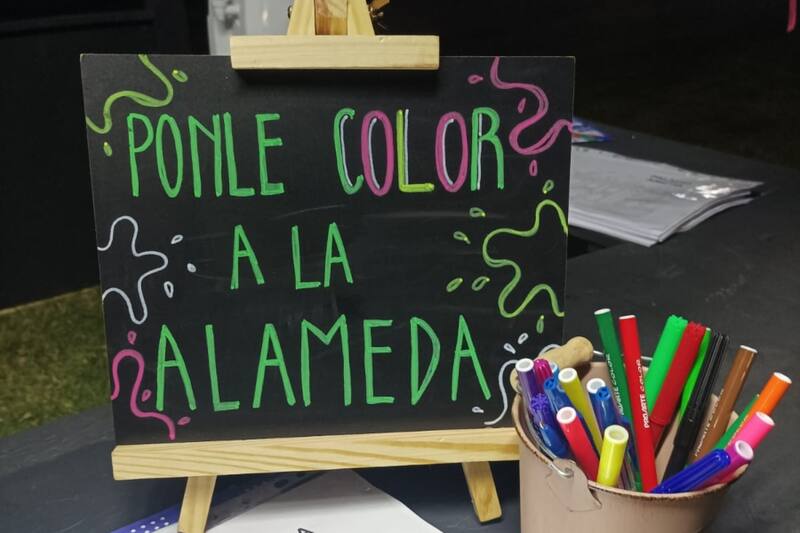 PONLE COLOR
A LA
ALAMEDA